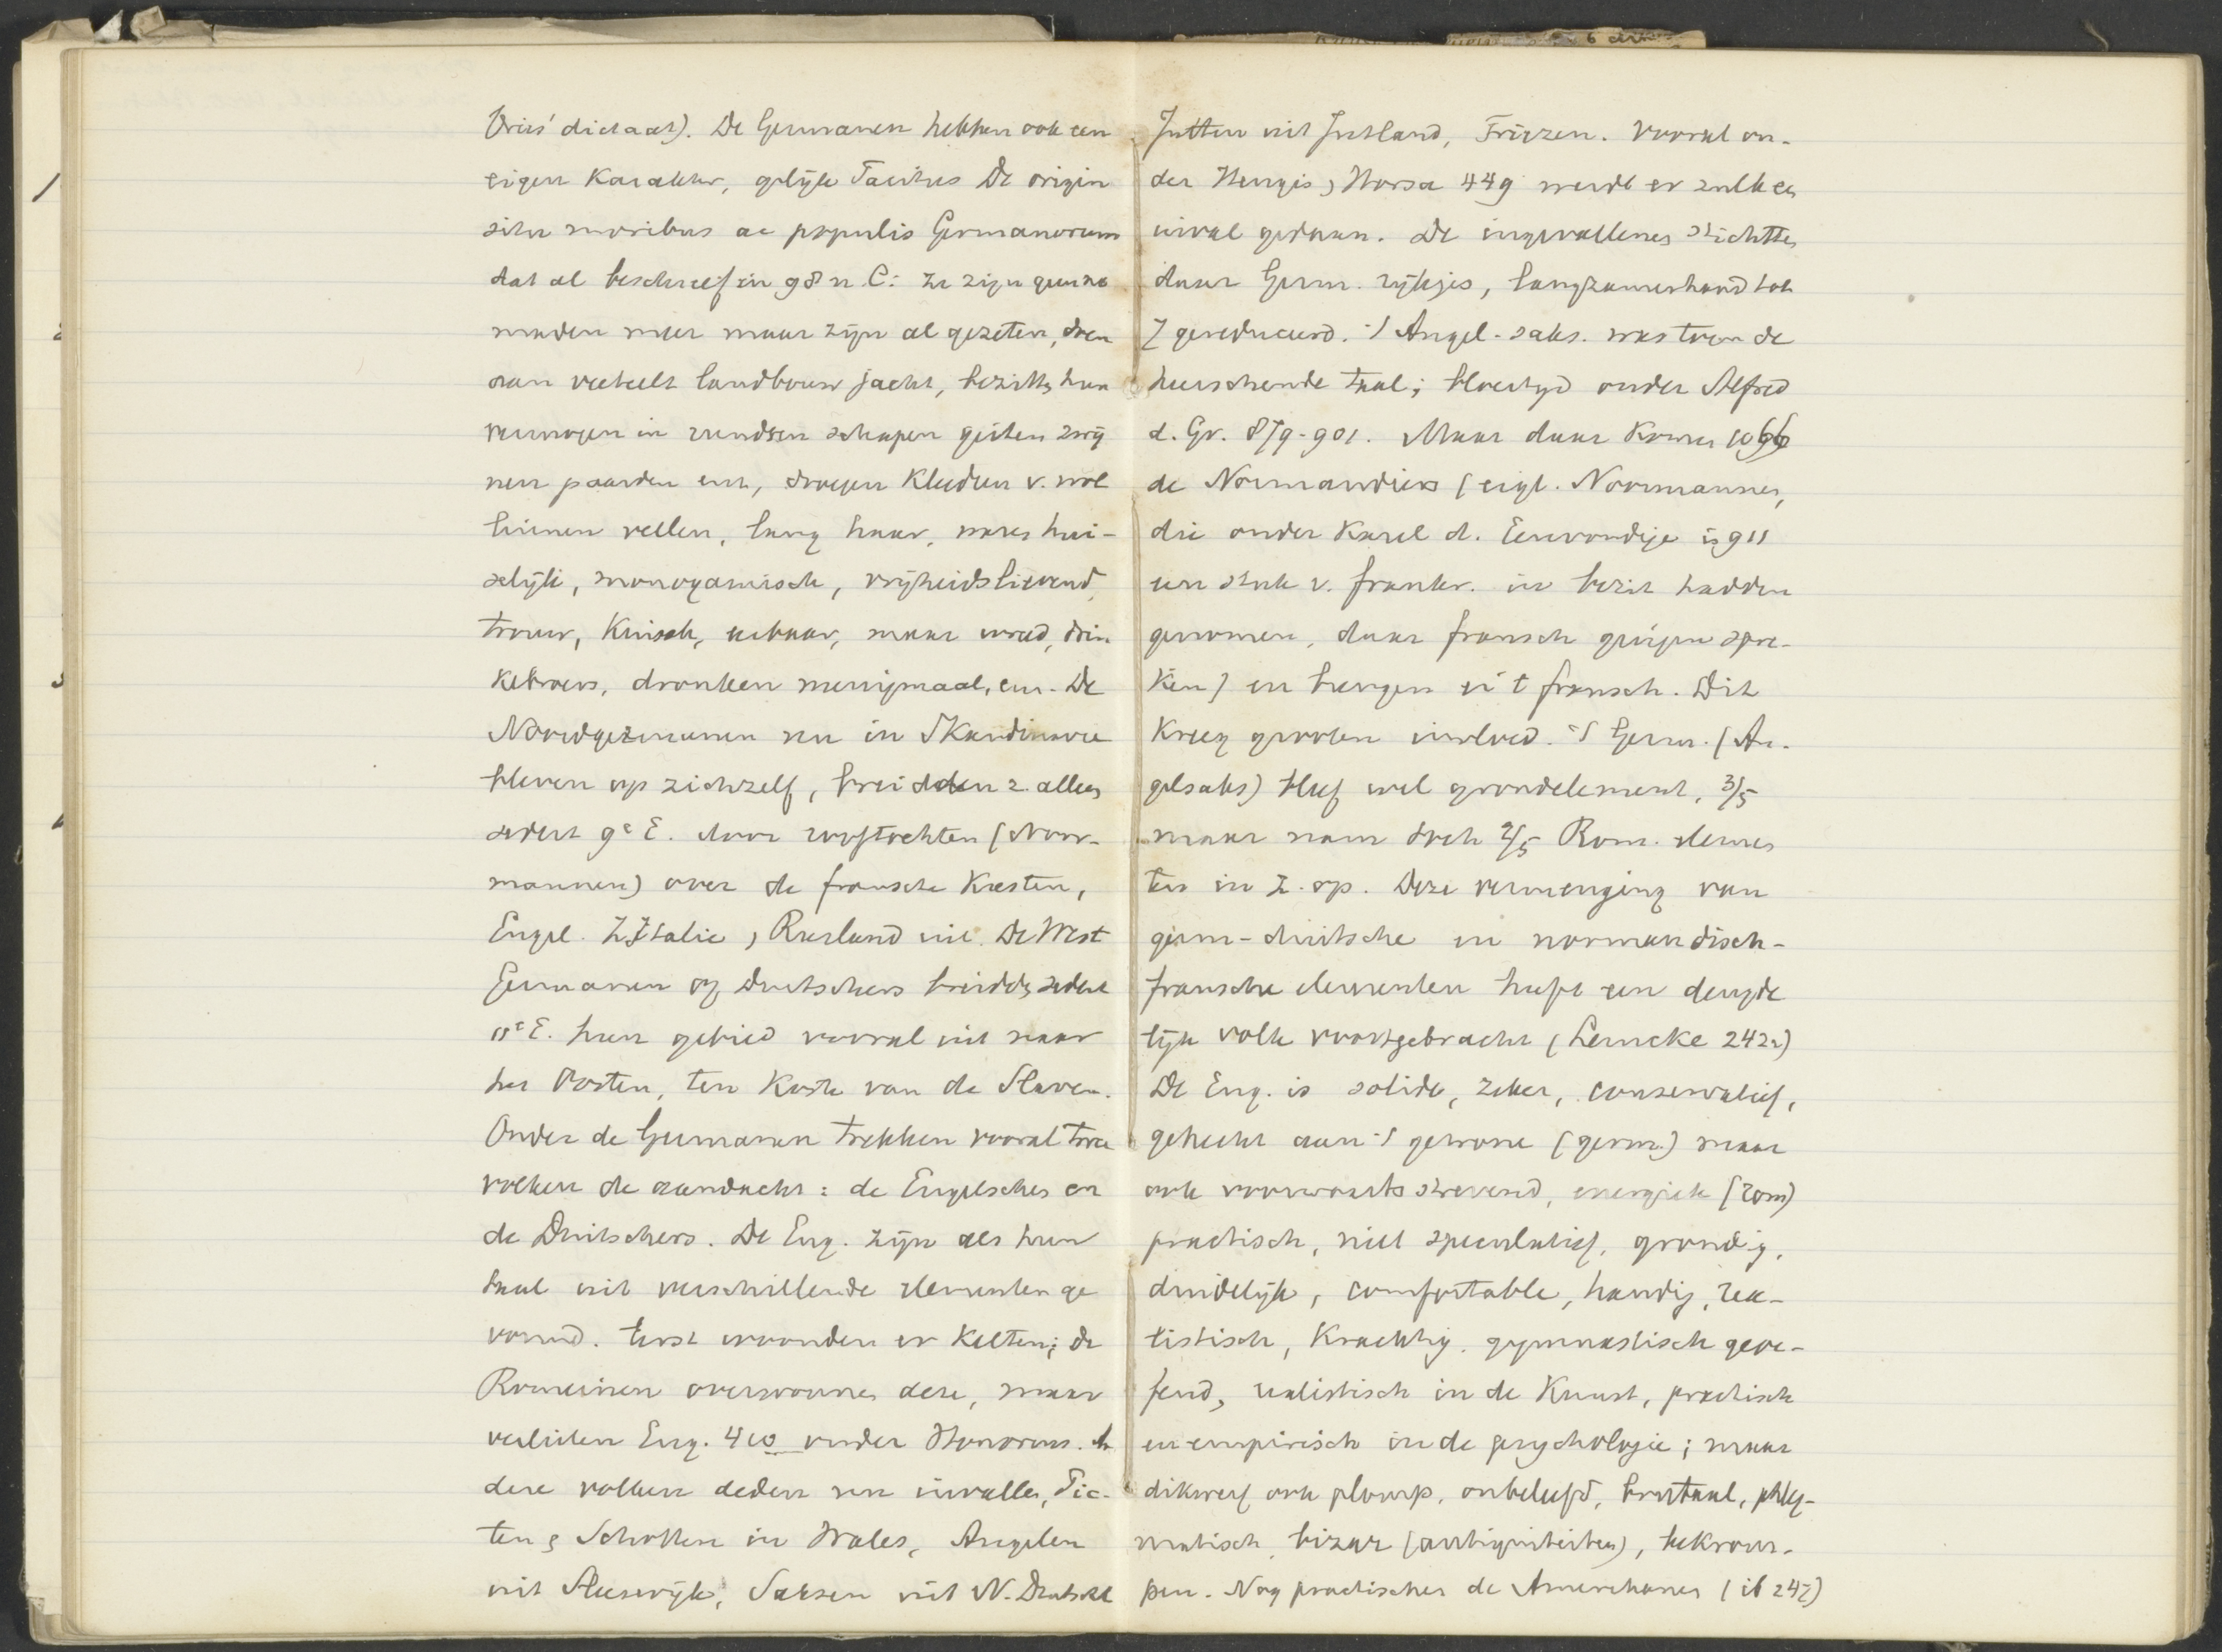 Vries' dictaat). De Germanen hebben ook een
eigen Karakter, gelijk Tacitus De origin
situ moribus ac populis Germanorum
dat al beschreef in 98 n. C: Ze zijn geene
maden meer maar zijn al gezeten, doen
aan veeteelt landbouw jacht, bezitten hun
vermogen in runderen schapen geiten zwij
nen paarden enz, dragen Kleederen v. wol
linnen vellen, lang haar, waren hui-
selijk, monogamisch, vrijheidslievend,
trouw, Kuisch, eerbaar, maar wreed, drin
kebroers, dronken menigmaal, enz. De
Noordgermanen nu in Skandinavie
bleven op zichzelf, breidden z. alleen
sedert 9e E. door rooftochten (Noor-
mannen) over de fransche Kusten,
Engel. Z Italie, Rusland uit. De West
Germanen of Duitschers breidden sedert
11e E. hun gebied vooral uit naar
het Oosten, ten Koste van de Slaven.
Onder de Germanen trekken vooral twee
volken de aandacht: de Engelschen en
de Duitschers. De Eng. zijn als hun
taal uit verschillende elementen ge
vormd. Eerst woonden er Kelten; de
Romeinen overwonnen deze, maar
verlieten Eng. 410 onder Honorius. An
dere volken deden nu invallen, Pic-
ten, Schotten in Wales, Angelen
uit Sleeswijk, Saksen uit N. Duitschl
Jutten uit Jutland, Friezen. Vooral on-
der Hengis, Horsa 449 werdt er zulk een
inval gedaan. De ingevallenen stichtten
daar Germ. rijkjes, langzamerhand tot
7 gereduceerd. 't Angel-saks. was toen de
heerschende taal; bloeityd onder Alfred
d. Gr. 879-901. Maar daar Komen 1066
de Normandiers (eigl. Noormannen,
die onder Karel d. Eenvoudige in 911
een stuk v. frankr. in bezit hadden
genomen, daar fransch gingen spre-
Ken) en brengen er 't fransch. Dit
Kreeg grooten invloed. 't Germ. (An-
gelsaks) bleef wel grondelement, 3/5
maar nam toch 2/5 Rom. elemen
ten in z. op. Deze vermenging van
germ-duitsche en normandisch-
fransche elementen heeft een deugde
lijk volk voortgebracht (Lemcke 242v)
De Eng. is solide, zeker, conservatief,
gehecht aan 't gewone (germ.) maar
ook voorwaarts strevend, energiek (rom)
practisch, niet speculatief, grondig,
duidelijk, comfortable, handig, rea-
listisch, Krachtig, gymnastisch geoe-
fend, realistisch in de Kunst, practisch
en empirisch in de psychologie; maar
dikwerf ook plomp, onbeleefd, brutaal, phleg-
matisch, bizar (antiquiteiten), bekrom-
pen. Nog practischer de Amerikanen (ib 247)